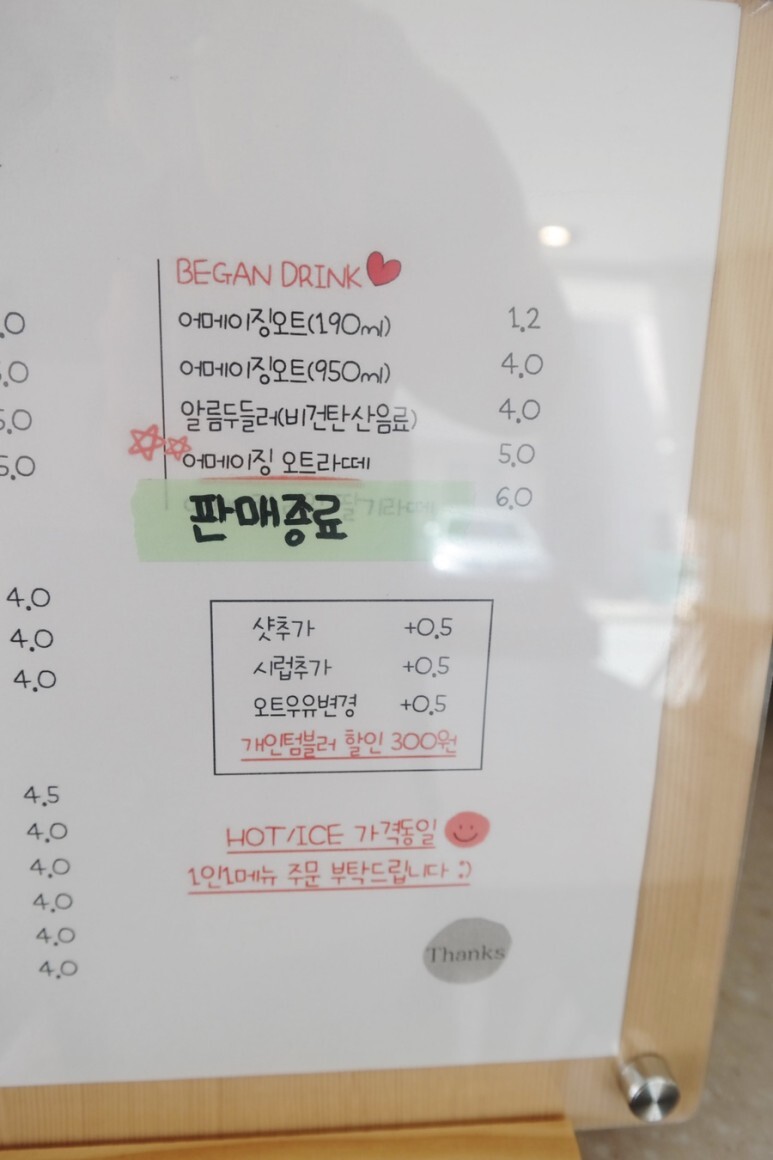 BEGAN DRINK
어메이징오트(190ml) 1.2
어메이징오트(950ml) 4.0
알름두들러(비건탄산음료) 4.0
어메이징 오트라떼 5.0
판매종료 6.0
샷추가 +0.5
시럽추가 +0.5
오트우유변경 +0.5
개인텀블러 할인 300원
HOT/ICE 가격동일
1인1메뉴 주문 부탁드립니다 :)
Thanks
.0
.0
5.0
5.0
4.0
4.0
4.0
4.5
4.0
4.0
4.0
4.0
4.0